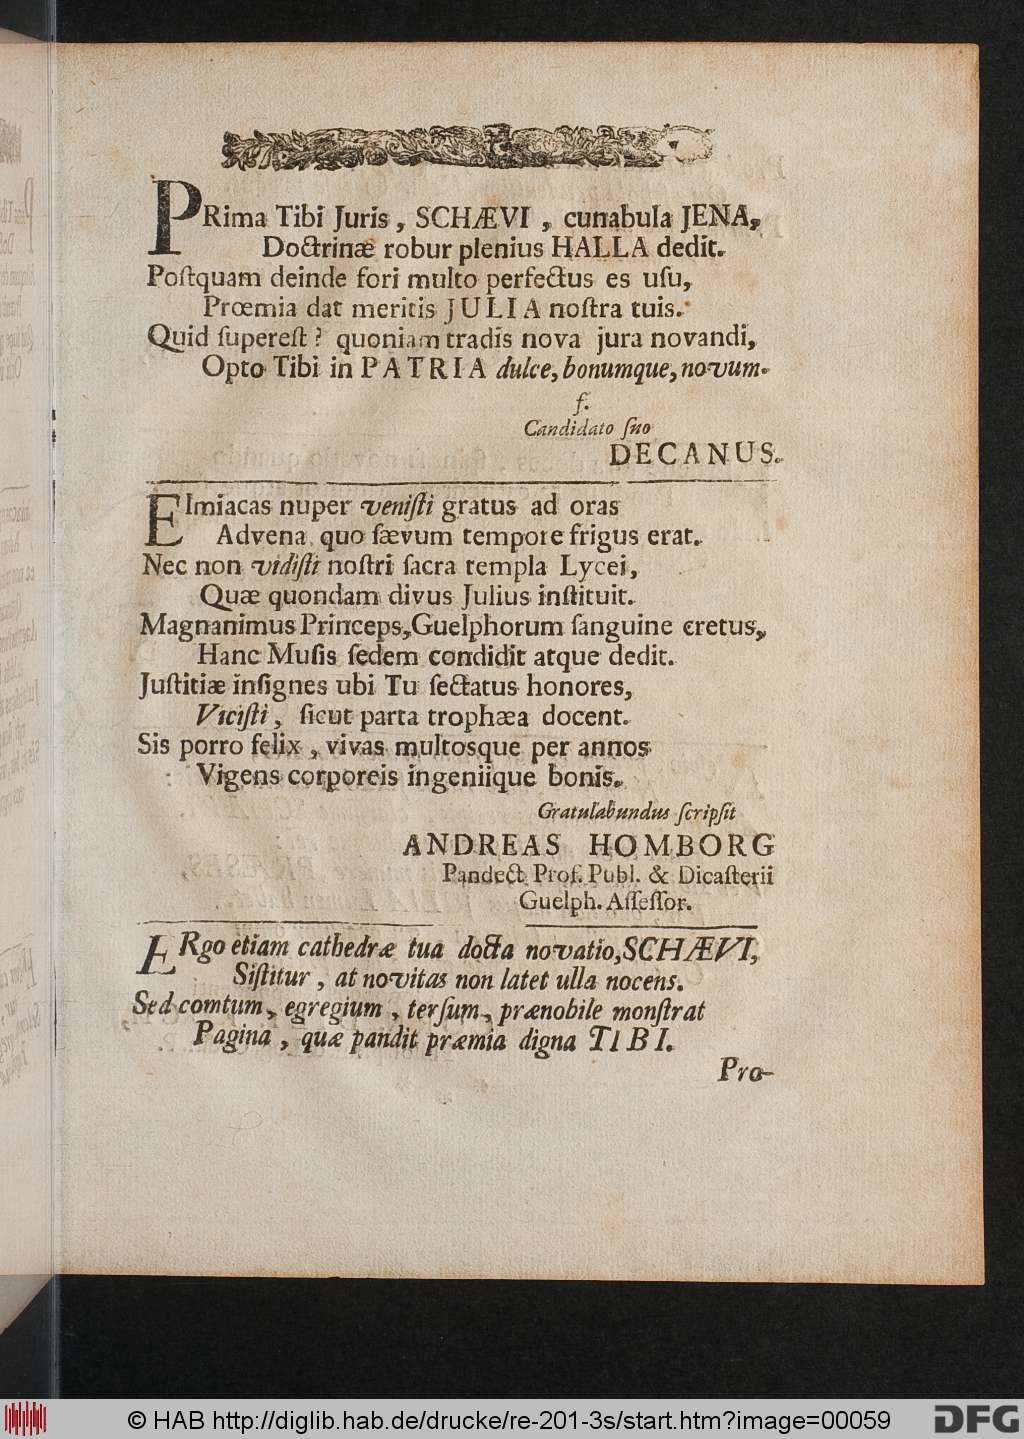 PRima Tibi Juris, SCHÆVI, cunabula JENA,
Doctrinæ robur plenius HALLA dedit.
Poſtquam deinde fori multo perfectus es uſu,
Prœmia dat meritis JULIA noſtra tuis.
Quid ſupereſt? quoniam tradis nova jura novandi,
Opto Tibi in PATRIA dulce, bonumque, novum.
ſ.
Candidato ſuo
DECANUS.
ELmiacas nuper veniſti gratus ad oras
Advena quo ſævum tempore frigus erat.
Nec non vidiſti noſtri ſacra templa Lycei,
Quæ quondam divus Julius inſtituit.
Magnanimus Princeps, Guelphorum ſanguine cretus,
Hanc Muſis ſedem condidit atque dedit.
Juſtitiæ inſignes ubi Tu ſectatus honores,
Viciſti, ſicut parta trophæa docent.
Sis porro felix, vivas multosque per annos
Vigens corporeis ingeniique bonis.
Gratulabundus ſcripſit
ANDREAS HOMBORG
Pandect. Prof. Publ. & Dicaſterii
Guelph. Aſſeſſor.
ERgo etiam cathedræ tua docta novatio, SCHÆVI,
Siſtitur, at novitas non latet ulla nocens.
Sed comtum, egregium, terſum, prænobile monſtrat
Pagina, quæ pandit præmia digna TIBI.
Pro-
© HAB http://diglib.hab.de/drucke/re-201-3s/start.htm?image=00059
DFG